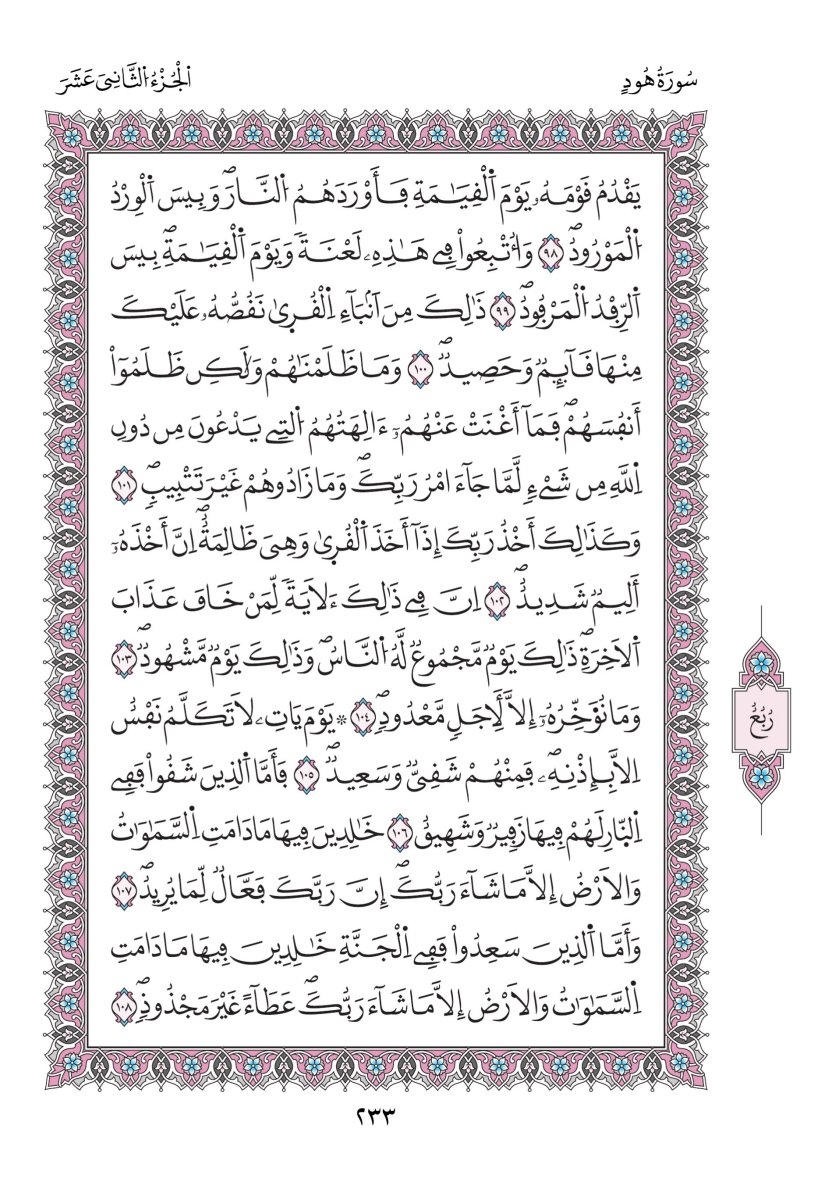 سُورَةُ هُودٍ
اَ۬لْجُزْءُ اُ۬لثَّانِے عَشَرَ
يَقْدُمُ قَوْمَهُۥ يَوْمَ اَ۬لْقِيَٰمَةِ فَأَوْرَدَهُمُ اُ۬لنَّارَۖ وَبِيسَ اَ۬لْوِرْدُ
اُ۬لْمَوْرُودُۖ ٩٨ وَأُتْبِعُواْ فِے هَٰذِهِۦ لَعْنَةٗ وَيَوْمَ اَ۬لْقِيَٰمَةِۖ بِيسَ
اَ۬لرِّفْدُ اُ۬لْمَرْفُودُۖ ٩٩ ذَٰلِكَ مِنَ اَنۢبَآءِ اِ۬لْقُر۪يٰ نَقُصُّهُۥ عَلَيْكَ
مِنْهَا قَآئِمٞ وَحَصِيدٞۖ ١٠٠ وَمَا ظَلَمْنَٰهُمْ وَلَٰكِن ظَلَمُوٓاْ
أَنفُسَهُمْۖ فَمَآ أَغْنَتْ عَنْهُمُۥٓ ءَالِهَتُهُمُ اُ۬لتِے يَدْعُونَ مِن دُونِ
اِ۬للَّهِ مِن شَےْءٖ لَّمَّا جَآءَ امْرُ رَبِّكَۖ وَمَا زَادُوهُمْ غَيْرَ تَتْبِيبٖۖ ١٠١
وَكَذَٰلِكَ أَخْذُ رَبِّكَ إِذَآ أَخَذَ اَ۬لْقُر۪يٰ وَهِيَ ظَٰلِمَةٌۖ اِنَّ أَخْذَهُۥٓ
أَلِيمٞ شَدِيدٌۖ ١٠٢ اِنَّ فِے ذَٰلِكَ ءَلَايَةٗ لِّمَنْ خَافَ عَذَابَ
اَ۬لَاخِرَةِۖ ذَٰلِكَ يَوْمٞ مَّجْمُوعٞ لَّهُ اُ۬لنَّاسُۖ وَذَٰلِكَ يَوْمٞ مَّشْهُودٞۖ ١٠٣
وَمَا نُؤَخِّرُهُۥٓ إِلَّا لِأَجَلٖ مَّعْدُودٖۖ ١٠٤ ۞ يَوْمَ يَاتِۦ لَا تَكَلَّمُ نَفْسٌ
اِلَّا بِإِذْنِهِۦۖ فَمِنْهُمْ شَقِيّٞ وَسَعِيدٞۖ ١٠٥ فَأَمَّا اَ۬لذِينَ شَقُواْ فَفِے
اِ۬لنّ۪ارِ لَهُمْ فِيهَا زَفِيرٞ وَشَهِيقٌ ١٠٦ خَٰلِدِينَ فِيهَا مَا دَامَتِ اِ۬لسَّمَٰوَٰتُ
وَالَارْضُ إِلَّا مَا شَآءَ رَبُّكَۖ إِنَّ رَبَّكَ فَعَّالٞ لِّمَا يُرِيدُۖ ١٠٧
وَأَمَّا اَ۬لذِينَ سَعِدُواْ فَفِے اِ۬لْجَنَّةِ خَٰلِدِينَ فِيهَا مَا دَامَتِ
اِ۬لسَّمَٰوَٰتُ وَالَارْضُ إِلَّا مَا شَآءَ رَبُّكَۖ عَطَآءً غَيْرَ مَجْذُوذٖۖ ١٠٨
رُبُعُ
٢٣٣